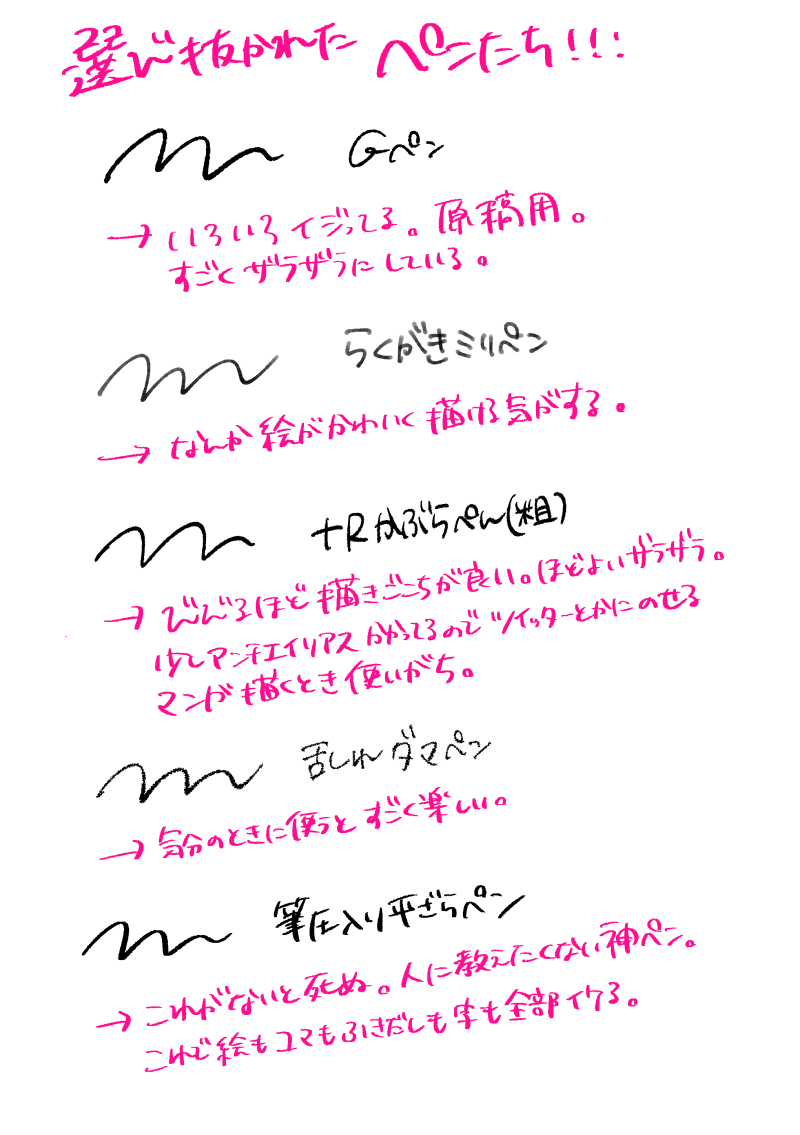 選び抜かれた ペンたち!!!
Gペン
→ いろいろイジってる。原稿用。
すごくザラザラにしている。
らくがきミリペン
→ なんか絵がかわいく描ける気がする。
+Rかぶらぺん(粗)
→ びびるほど描きごこちが良い。ほどよいザラザラ。
少しアンチエイリアスかかってるのでツイッターとかにのせる
マンガ描くとき使いがち。
乱れダマペン
→ 気分のときに使うとすごく楽しい。
筆圧入り平ざらペン
→ これがないと死ぬ。人に教えたくない神ペン。
これで絵もコマもふきだしも字も全部イケる。